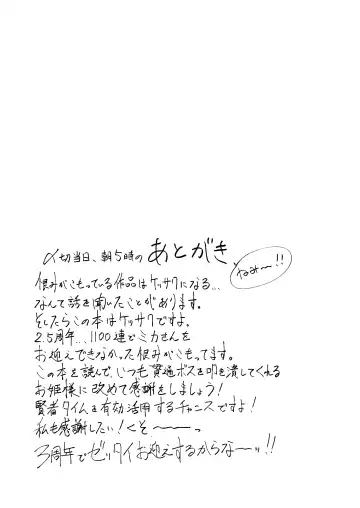 〆切当日、朝5時の あとがき
ねみ〜!!
恨みがこもっている作品はケッサクになる...
なんて話を聞いたことがあります。
そしたらこの本はケッサクですよ。
2.5周年...1100連でミカさんを
お迎えできなかった恨みがこもってます。
この本を読んで、いつも貫通ボスを叩き潰してくれる
お姫様に改めて感謝をしましょう!
賢者タイムを有効活用するチャンスですよ!
私も感謝したい!くそ〜〜っ
3周年でゼッタイお迎えするからな〜ッ!!